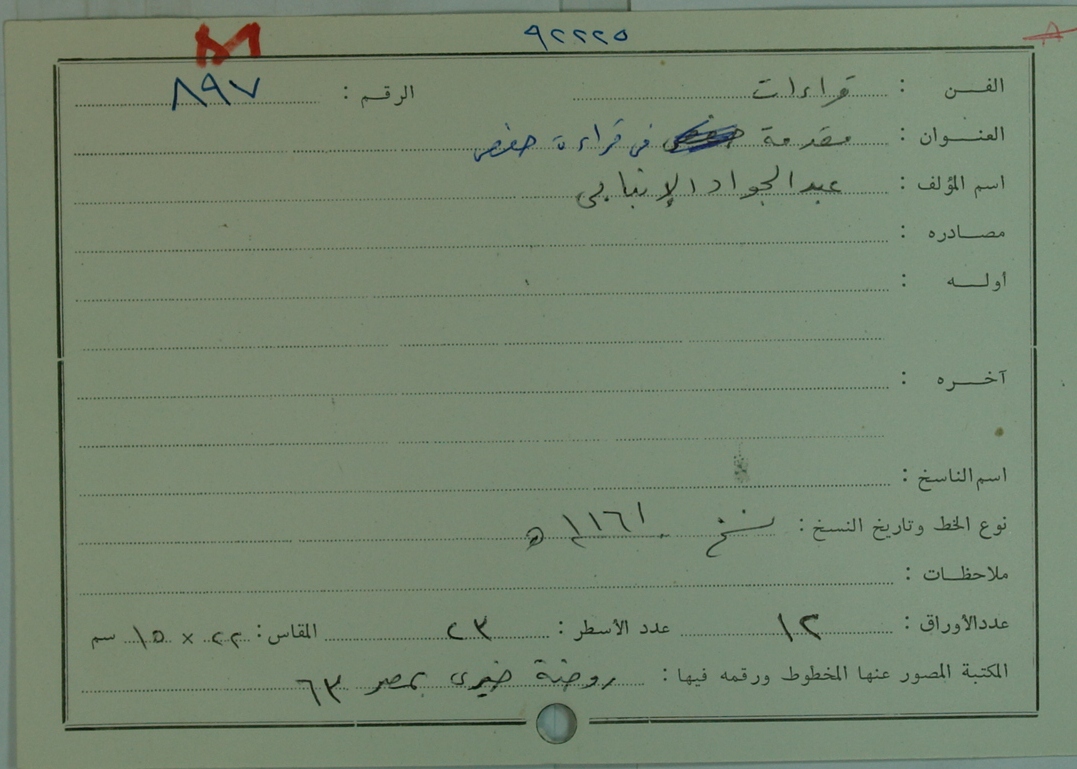 M ٩٢٢٢٥ ٨
الفن : قراءات الرقم : ٨٩٧
العنوان : مقدمة في قراءة حفص
اسم المؤلف : عبد الجواد الإنبابي
مصادره :
أوله :
آخره :
اسم الناسخ :
نوع الخط وتاريخ النسخ : نسخ ١١٦١ هـ
ملاحظات :
عدد الأوراق : ١٢ عدد الأسطر : ٢٣ المقاس : ٢٢ × ١٥ سم
المكتبة المصور عنها المخطوط ورقمه فيها : روضة خيري بمصر ٦٣